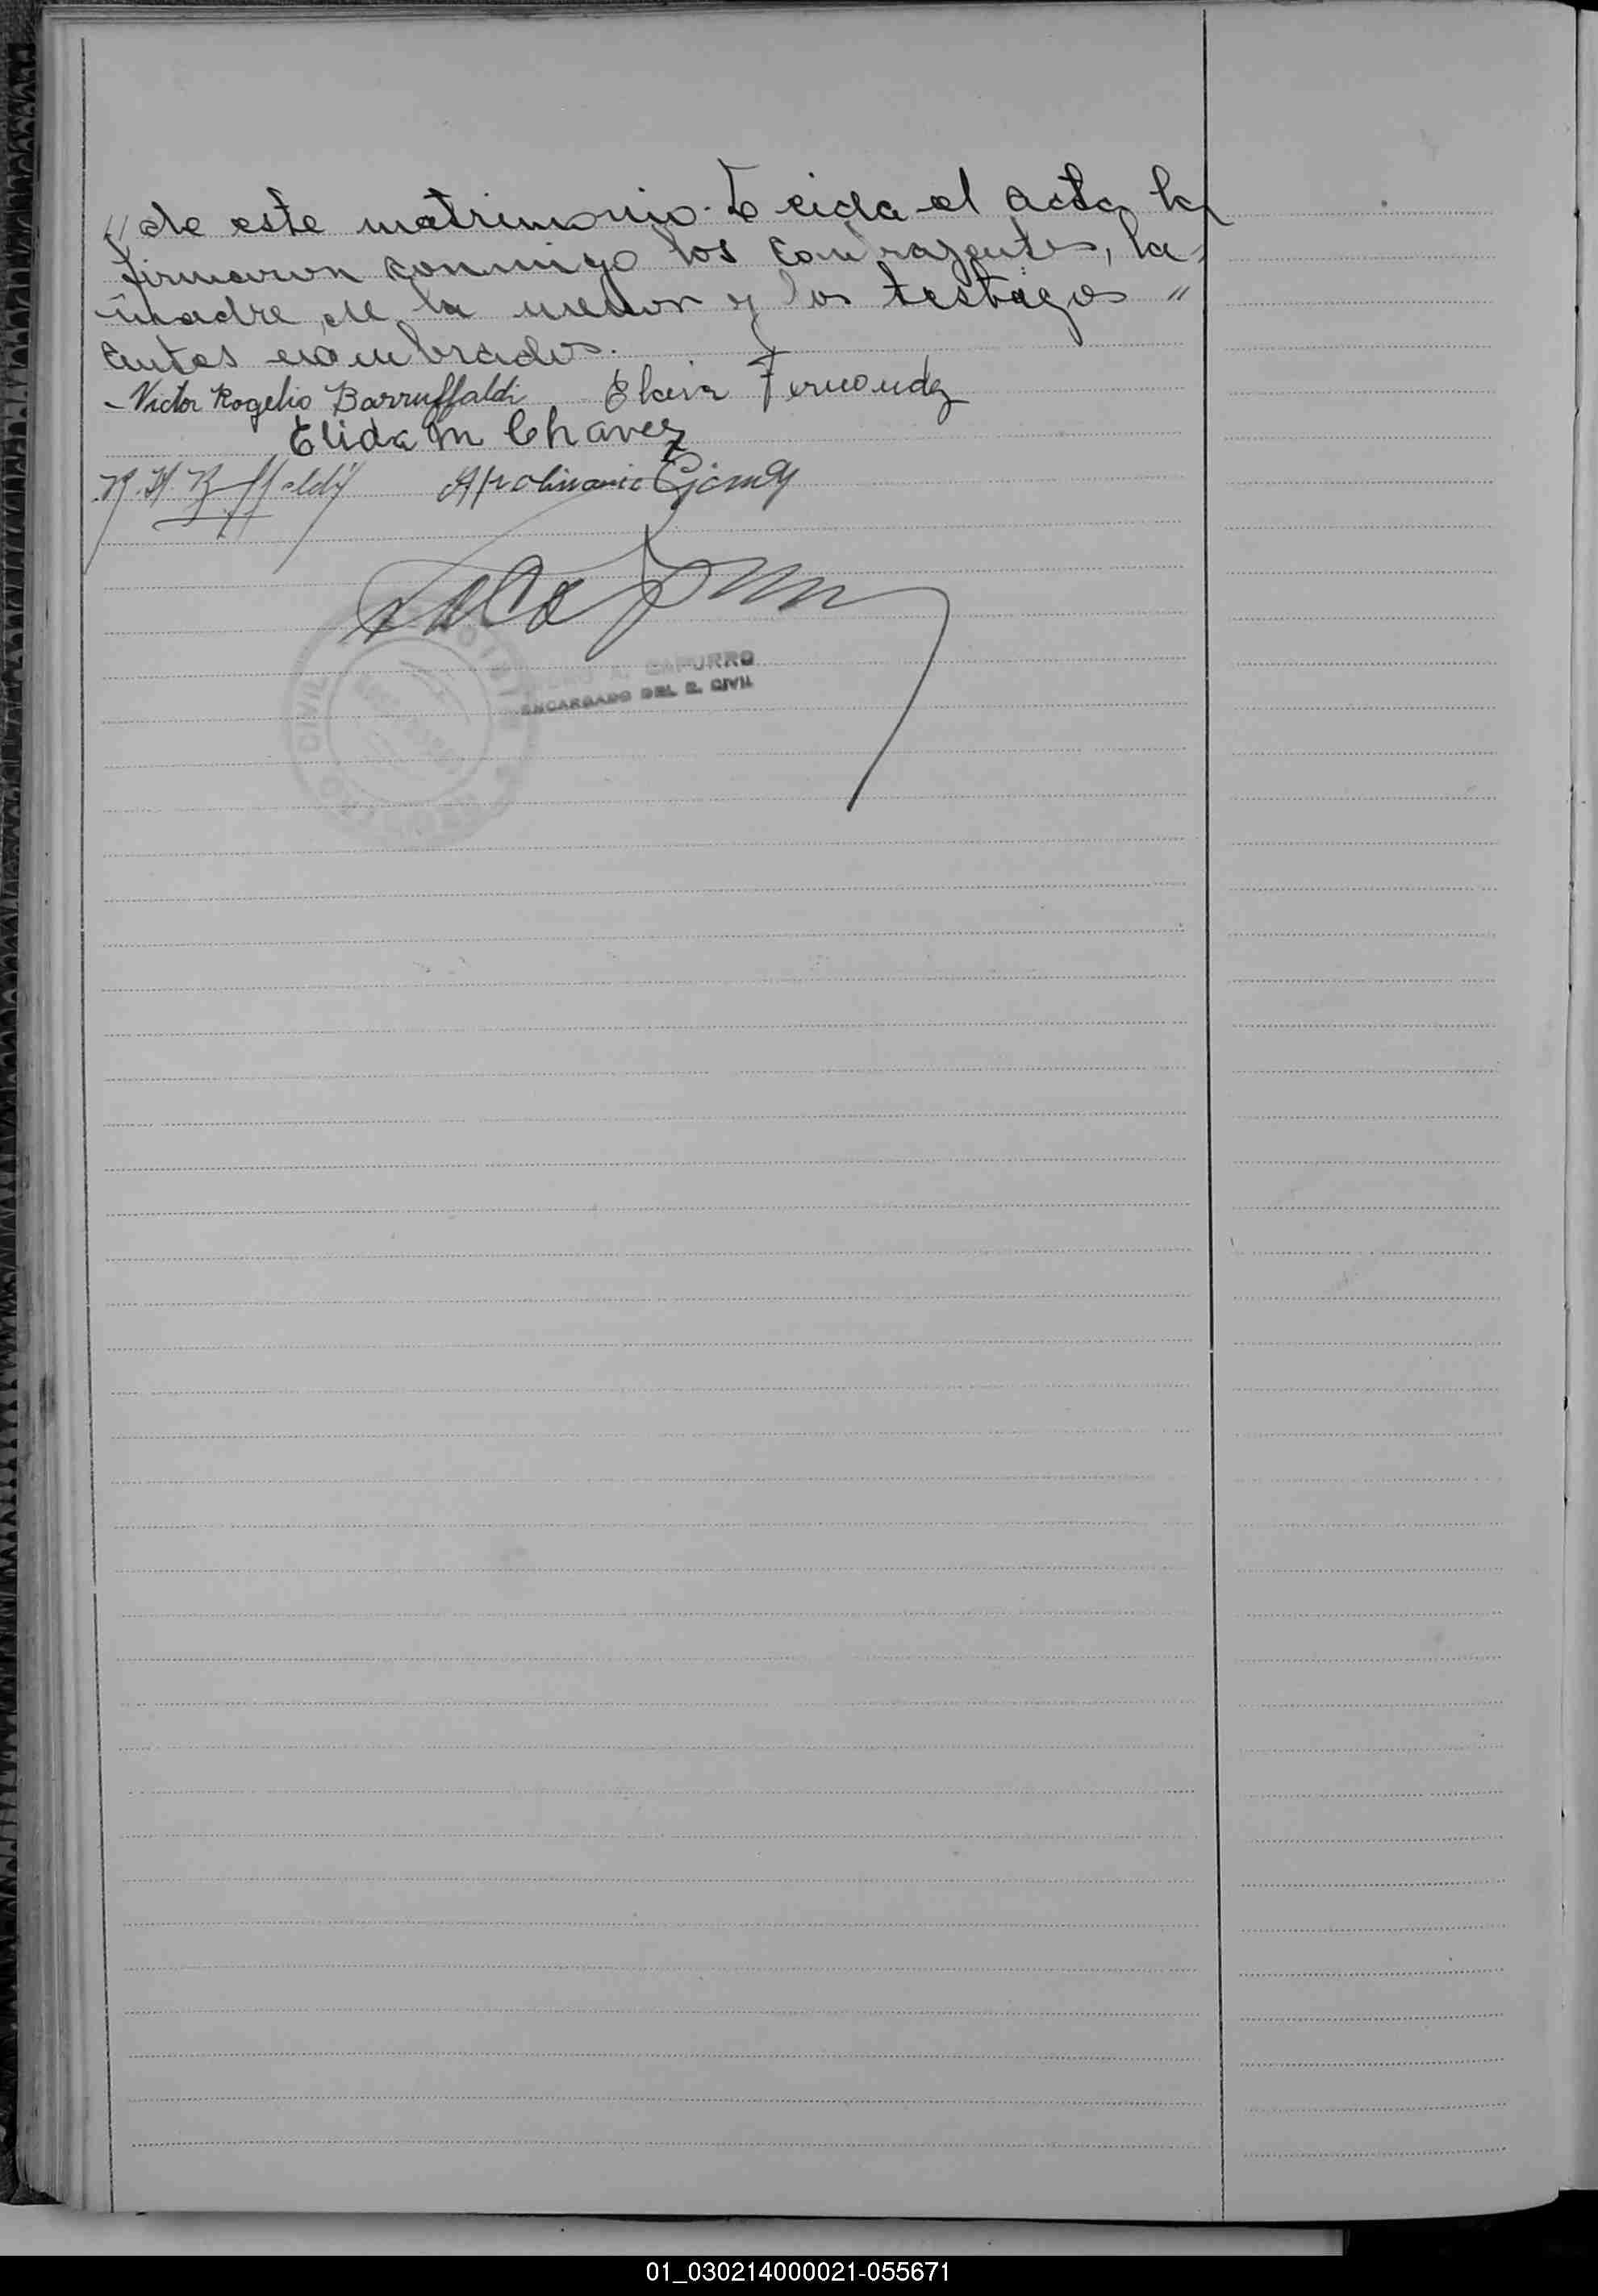 de este matrimonio. Leida el acta la
firmaron conmigo los contrayentes, la
madre de la menor y los testigos "
antes nombrados.
- Victor Rogelio Barruffaldi Elvira Fernandez
Elida M Chavez
Apolinario
A. CAPURRO
ENCARGADO DEL R. CIVIL
CIVIL
01_030214000021-055671